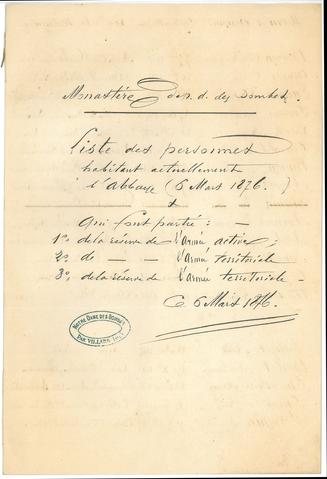 Monastère de n. d. des Dombes.
Liste des personnes
habitant actuellement
l'abbaye (6 Mars 1876.)
qui font partie : —
1° de la réserve de l'armée active ;
2° de — — l'armée territoriale
3° de la réserve de l'armée territoriale —
Ce 6 Mars 1876.
NOTRE DAME DES DOMBES
PAR VILLARS (AIN)